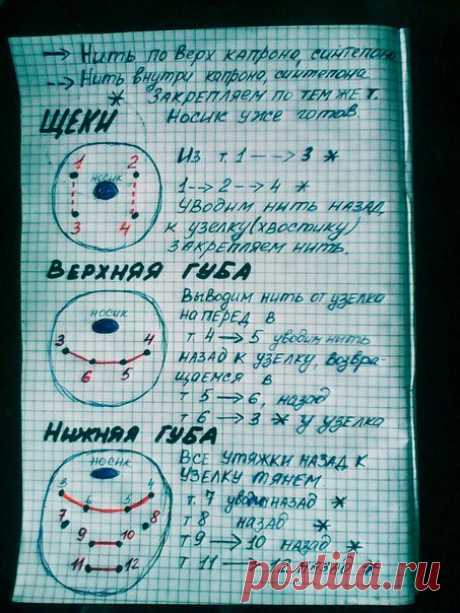 —> Нить по верх капрона, синтепона
--> Нить внутри капрона, синтепона
* Закрепляем по тем же т.
ЩЕКИ Носик уже готов.
1 2
носик
3 4
Из т. 1 --> 3 *
1 --> 2 --> 4 *
уводим нить назад,
к узелку (хвостику)
закрепляем нить.
ВЕРХНЯЯ ГУБА
носик
3 4
6 5
Выводим нить от узелка
на перед в
т. 4 —> 5 уводим нить
назад к узелку, возвра-
щаемся в
т 5 —> 6, назад
т 6 —> 3 * у узелка
НИЖНЯЯ ГУБА
носик
3 4
6 5
7 8
9 10
11 12
Все утяжки назад к
узелку тянем.
т. 7 уводим назад *
т 8 назад *
т 9 —> 10 назад *
т 11 —> 12 назад *
postila.ru